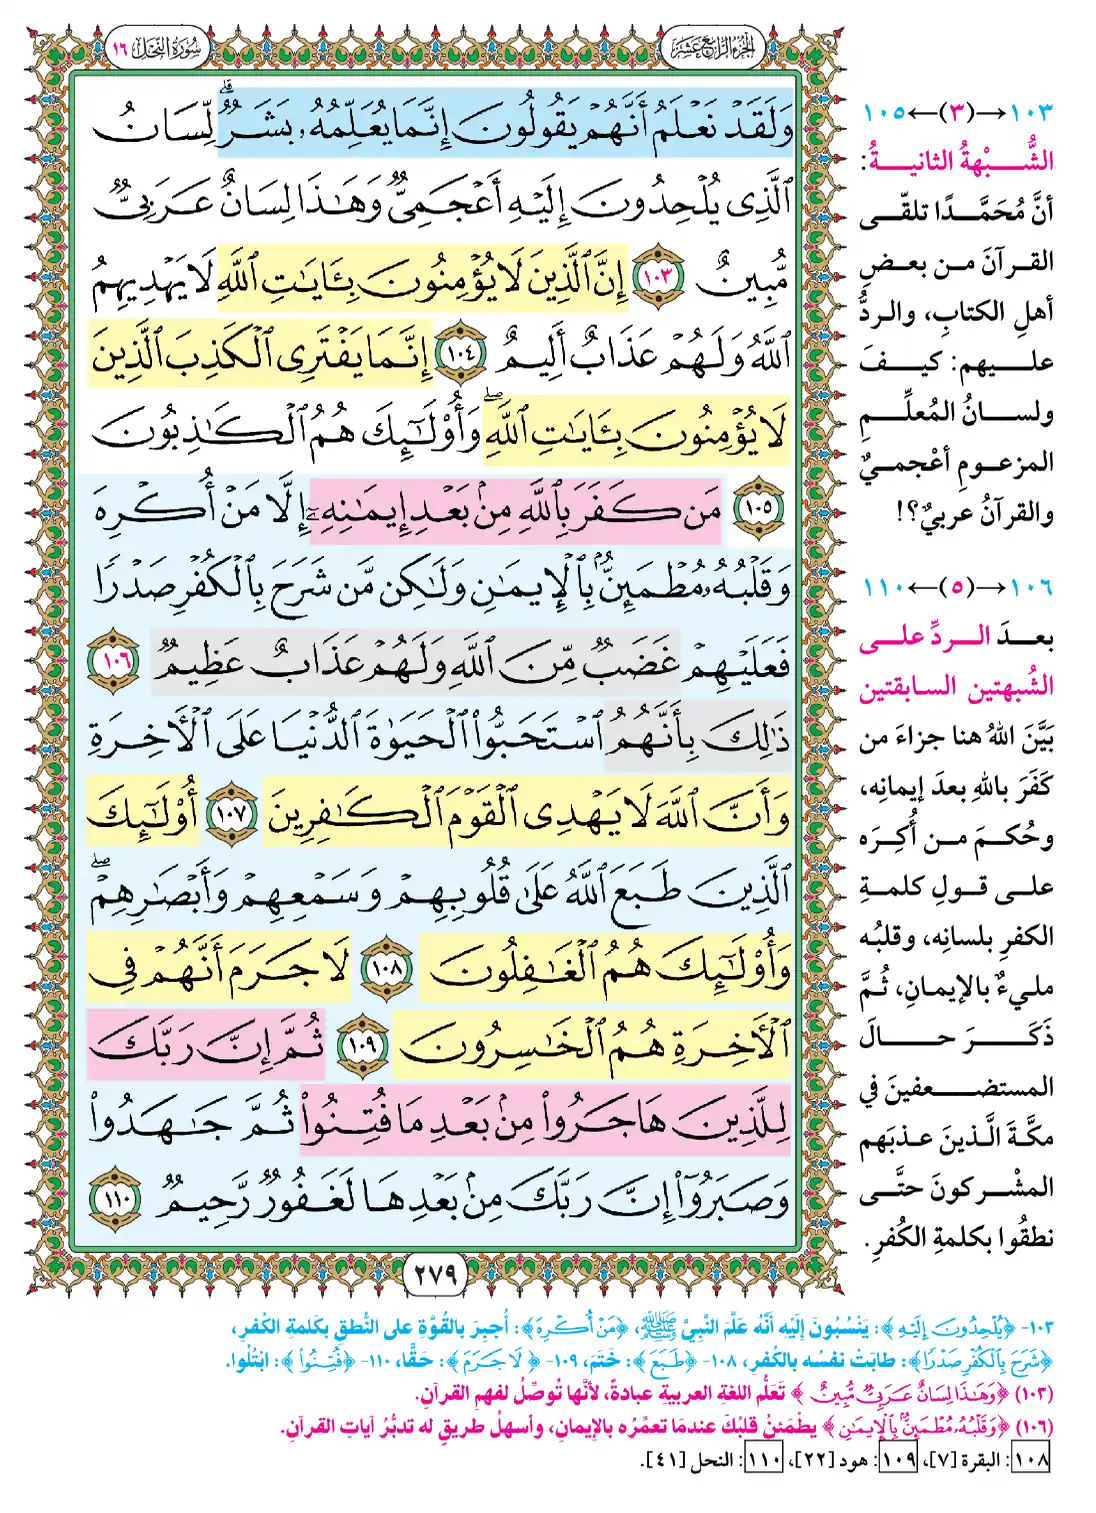 الجزء الرابع عشر
سورة النحل ١٦
وَلَقَدْ نَعْلَمُ أَنَّهُمْ يَقُولُونَ إِنَّمَا يُعَلِّمُهُۥ بَشَرٌ ۗ لِّسَانُ
ٱلَّذِى يُلْحِدُونَ إِلَيْهِ أَعْجَمِىٌّ وَهَٰذَا لِسَانٌ عَرَبِىٌّ
مُّبِينٌ ١٠٣ إِنَّ ٱلَّذِينَ لَا يُؤْمِنُونَ بِـَٔايَٰتِ ٱللَّهِ لَا يَهْدِيهِمُ
ٱللَّهُ وَلَهُمْ عَذَابٌ أَلِيمٌ ١٠٤ إِنَّمَا يَفْتَرِى ٱلْكَذِبَ ٱلَّذِينَ
لَا يُؤْمِنُونَ بِـَٔايَٰتِ ٱللَّهِ ۖ وَأُو۟لَٰٓئِكَ هُمُ ٱلْكَٰذِبُونَ
١٠٥ مَن كَفَرَ بِٱللَّهِ مِنۢ بَعْدِ إِيمَٰنِهِۦٓ إِلَّا مَنْ أُكْرِهَ
وَقَلْبُهُۥ مُطْمَئِنٌّۢ بِٱلْإِيمَٰنِ وَلَٰكِن مَّن شَرَحَ بِٱلْكُفْرِ صَدْرًا
فَعَلَيْهِمْ غَضَبٌ مِّنَ ٱللَّهِ وَلَهُمْ عَذَابٌ عَظِيمٌ ١٠٦
ذَٰلِكَ بِأَنَّهُمُ ٱسْتَحَبُّوا۟ ٱلْحَيَوٰةَ ٱلدُّنْيَا عَلَى ٱلْأَخِرَةِ
وَأَنَّ ٱللَّهَ لَا يَهْدِى ٱلْقَوْمَ ٱلْكَٰفِرِينَ ١٠٧ أُو۟لَٰٓئِكَ
ٱلَّذِينَ طَبَعَ ٱللَّهُ عَلَىٰ قُلُوبِهِمْ وَسَمْعِهِمْ وَأَبْصَٰرِهِمْ ۖ
وَأُو۟لَٰٓئِكَ هُمُ ٱلْغَٰفِلُونَ ١٠٨ لَا جَرَمَ أَنَّهُمْ فِى
ٱلْأَخِرَةِ هُمُ ٱلْخَٰسِرُونَ ١٠٩ ثُمَّ إِنَّ رَبَّكَ
لِلَّذِينَ هَاجَرُوا۟ مِنۢ بَعْدِ مَا فُتِنُوا۟ ثُمَّ جَٰهَدُوا۟
وَصَبَرُوٓا۟ إِنَّ رَبَّكَ مِنۢ بَعْدِهَا لَغَفُورٌ رَّحِيمٌ ١١٠
٢٧٩
١٠٣→(٣)←١٠٥
الشُّبْهةُ الثانيةُ:
أنَّ مُحَمَّدًا تلقَّى
القرآنَ من بعضِ
أهلِ الكتابِ، والردُّ
عليهم: كيفَ
ولسانُ المُعلِّمِ
المزعومِ أعْجميٌ
والقرآنُ عربيٌ؟!
١٠٦→(٥)←١١٠
بعدَ الردِّ على
الشُبهتين السابقتين
بَيَّنَ اللهُ هنا جزاءَ من
كَفَرَ باللهِ بعدَ إيمانِه،
وحُكمَ من أُكِرَه
على قولِ كلمةِ
الكفرِ بلسانِه، وقلبُه
مليءٌ بالإيمانِ، ثُمَّ
ذَكَرَ حالَ
المستضعفينَ في
مكَّةَ الَّذينَ عذبَهم
المشْركونَ حتَّى
نطقُوا بكلمةِ الكُفرِ.
١٠٣- ﴿يُلْحِدُونَ إِلَيْهِ﴾: يَنْسُبُونَ إِلَيْهِ أَنَّهُ عَلَّمَ النَّبِيَّ ﷺ، ﴿مَنْ أُكْرِهَ﴾: أُجبِرَ بالقُوَّةِ على النُّطقِ بكلمةِ الكُفرِ،
﴿شَرَحَ بِٱلْكُفْرِ صَدْرًا﴾: طابَتْ نفسُه بالكُفرِ، ١٠٨- ﴿طَبَعَ﴾: خَتَمَ، ١٠٩- ﴿لَا جَرَمَ﴾: حَقًّا، ١١٠- ﴿فُتِنُوا۟﴾: ابْتُلُوا.
(١٠٣) ﴿وَهَٰذَا لِسَانٌ عَرَبِىٌّ مُّبِينٌ﴾ تَعَلُّم اللغة العربية عبادةٌ، لأنَّها تُوصِّلُ لفهمِ القرآنِ.
(١٠٦) ﴿وَقَلْبُهُۥ مُطْمَئِنٌّۢ بِٱلْإِيمَٰنِ﴾ يطْمَئنُ قلبُكَ عندمَا تعمِّرُه بالإيمانِ، وأسهلُ طريقٍ له تدبُّرُ آياتِ القرآنِ.
١٠٨: البقرة [٧]، ١٠٩: هود [٢٢]، ١١٠: النحل [٤١].